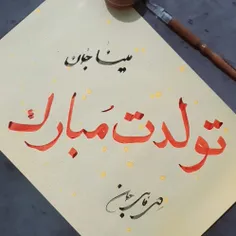 مینا جان
تولدت مُبارک